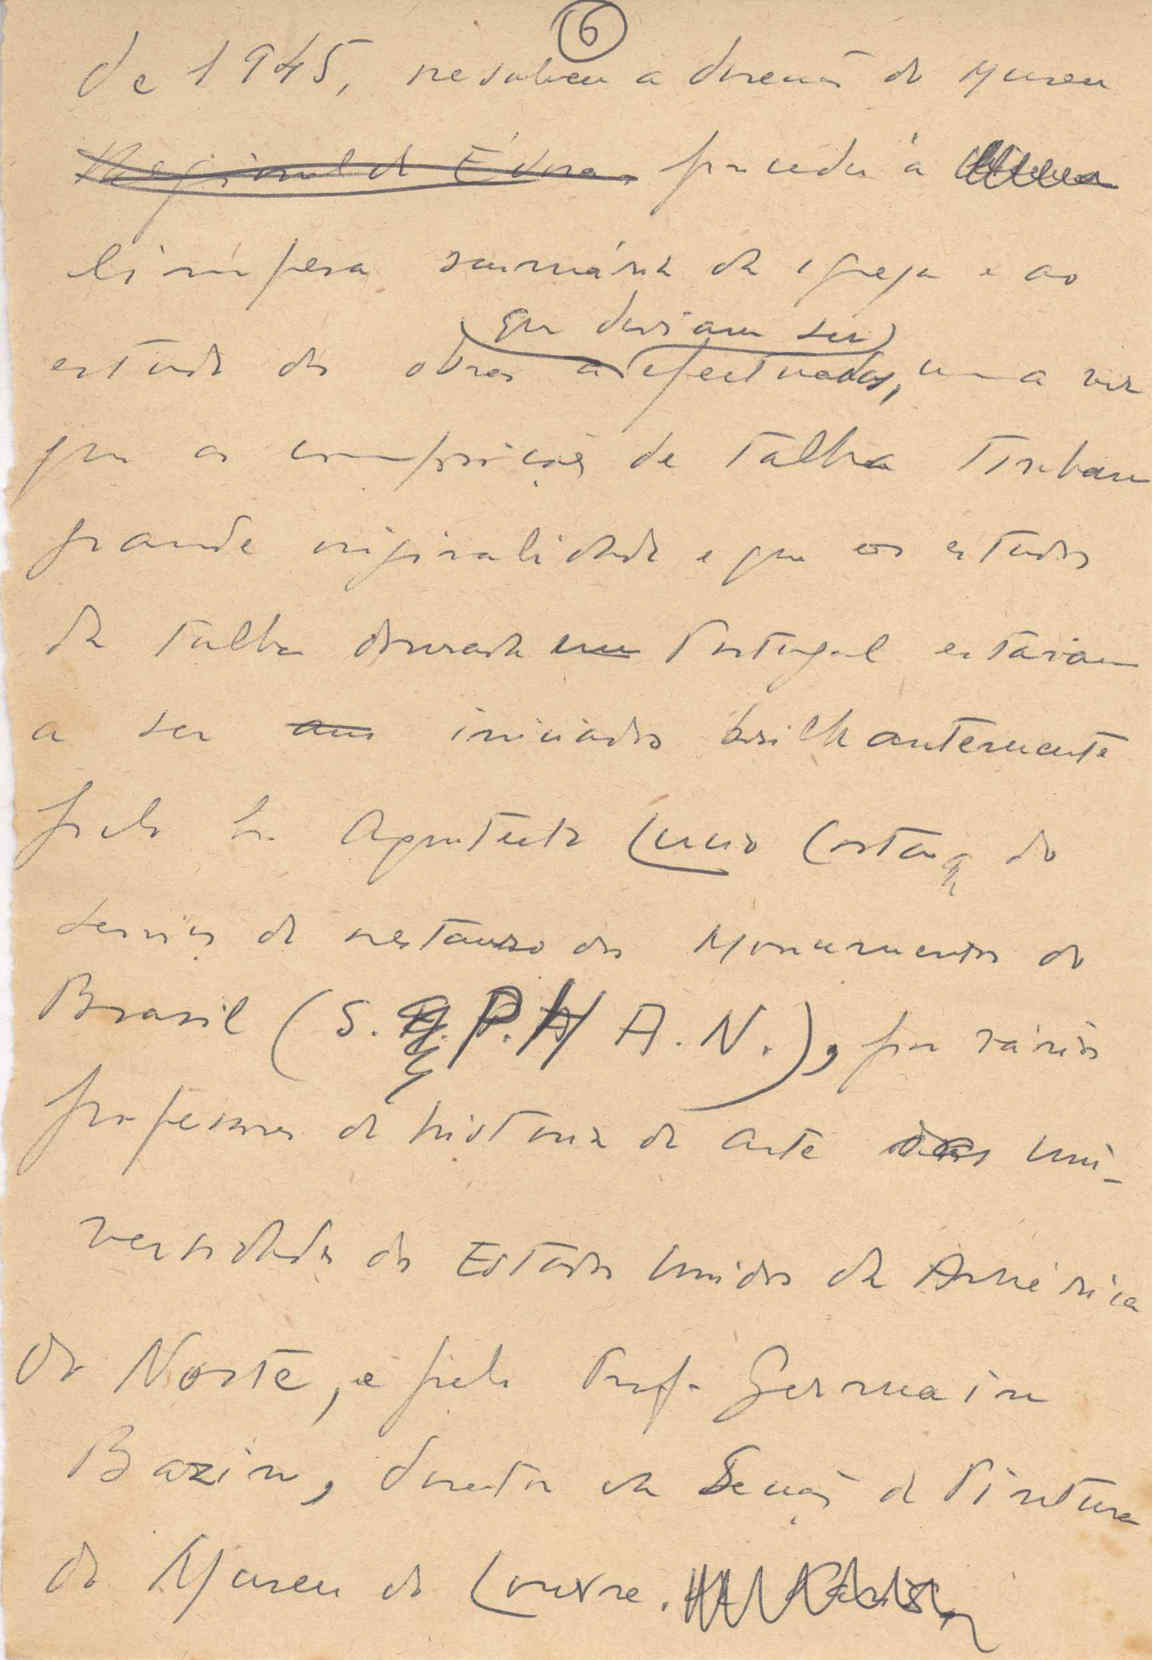 6
de 1945, resolveu a direcção do Museu
Regional de Évora proceder à
limpesa sumária da igreja e ao
que deviam ser
estudo das obras a efectuadas, uma vez
que as composições de talha tinham
grande originalidade e que os estudos
da talha dourada em Portugal estavam
a ser iniciados brilhantemente
pelo Sr. Arquitecto Lucio Costa, do
serviço de restauro dos Monumentos do
Brasil (S. P. H A. N.), por vários
professores de história da arte das Uni-
versidades dos Estados Unidos da América
do Norte, e pelo Prof. Germain
Bazin, director da Secção de Pintura
do Museu do Louvre.